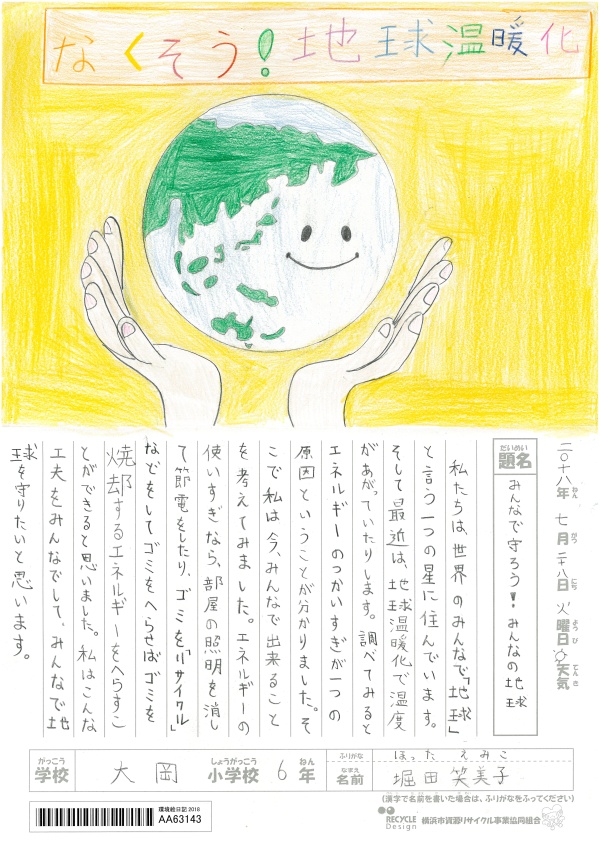 なくそう!地球温暖化
二〇十八年 七月二十八日 火曜日 天気
ねん がつ にち ようび てんき
だいめい
題名 みんなで守ろう!みんなの地球
私たちは、世界のみんなで「地球」
と言う一つの星に住んでいます。
そして最近は、地球温暖化で温度
があがっていたりします。調べてみると
エネルギーのつかいすぎが一つの
原因ということが分かりました。そ
こで私は今、みんなで出来ること
を考えてみました。エネルギーの
使いすぎなら、部屋の照明を消し
て節電をしたり、ゴミを「リサイクル」
などをしてゴミをへらせばゴミを
焼却するエネルギーをへらすこ
とができると思いました。私はこんな
工夫をみんなでして、みんなで地
球を守りたいと思います。
がっこう しょうがっこう ねん ふりがな ほった えみこ
学校 大岡 小学校 6年 なまえ 名前 堀田 笑美子
(漢字で名前を書いた場合は、ふりがなをふってください)
環境絵日記 2018
AA63143
RECYCLE Design 横浜市資源リサイクル事業協同組合